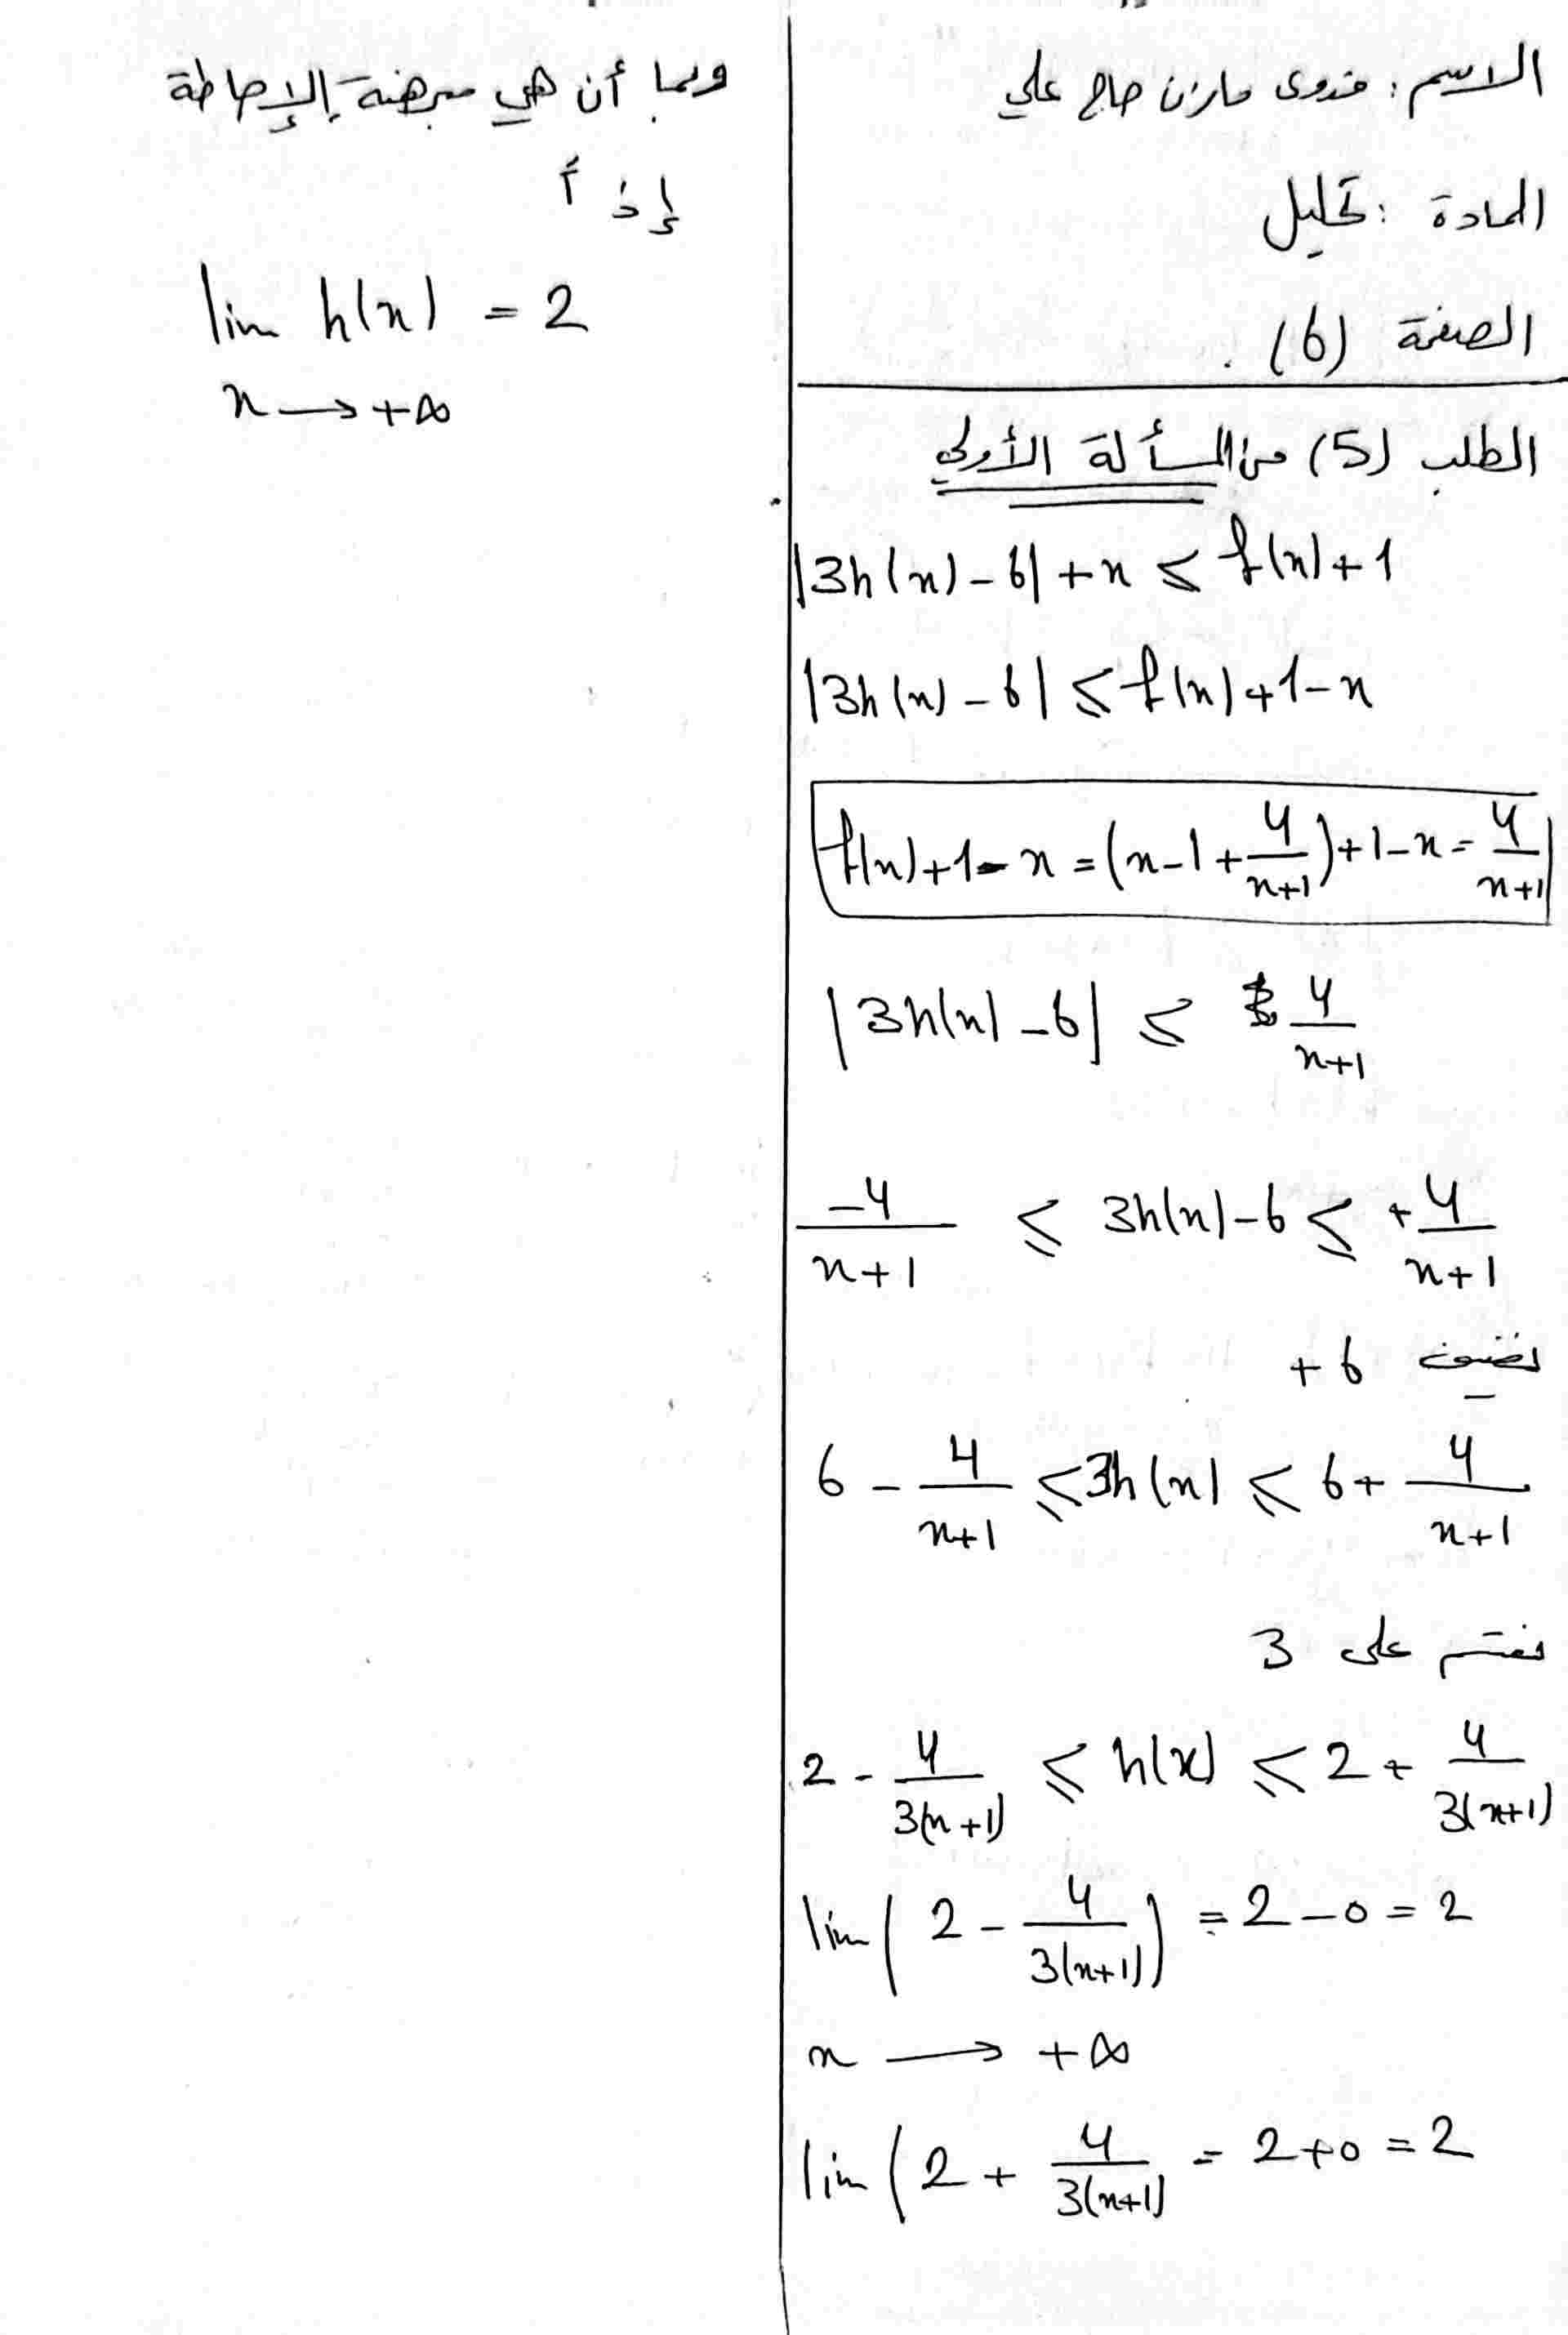 الاسم: فدوى مازن حاج علي
المادة: تحليل
الصفحة (6).
الطلب (5) من المسألة الأولى
|3h(x) - 6| + x ≤ f(x) + 1
|3h(x) - 6| ≤ f(x) + 1 - x
f(x) + 1 - x = (x - 1 + 4/(x+1)) + 1 - x = 4/(x+1)
|3h(x) - 6| ≤ 4/(x+1)
-4/(x+1) ≤ 3h(x) - 6 ≤ +4/(x+1)
نضيف 6 +
6 - 4/(x+1) ≤ 3h(x) ≤ 6 + 4/(x+1)
نقسم على 3
2 - 4/(3(x+1)) ≤ h(x) ≤ 2 + 4/(3(x+1))
lim (2 - 4/(3(x+1))) = 2 - 0 = 2
x → +∞
lim (2 + 4/(3(x+1)) = 2 + 0 = 2
وبما أن هي مبرهنة الإحاطة
إذاً
lim h(x) = 2
x → +∞